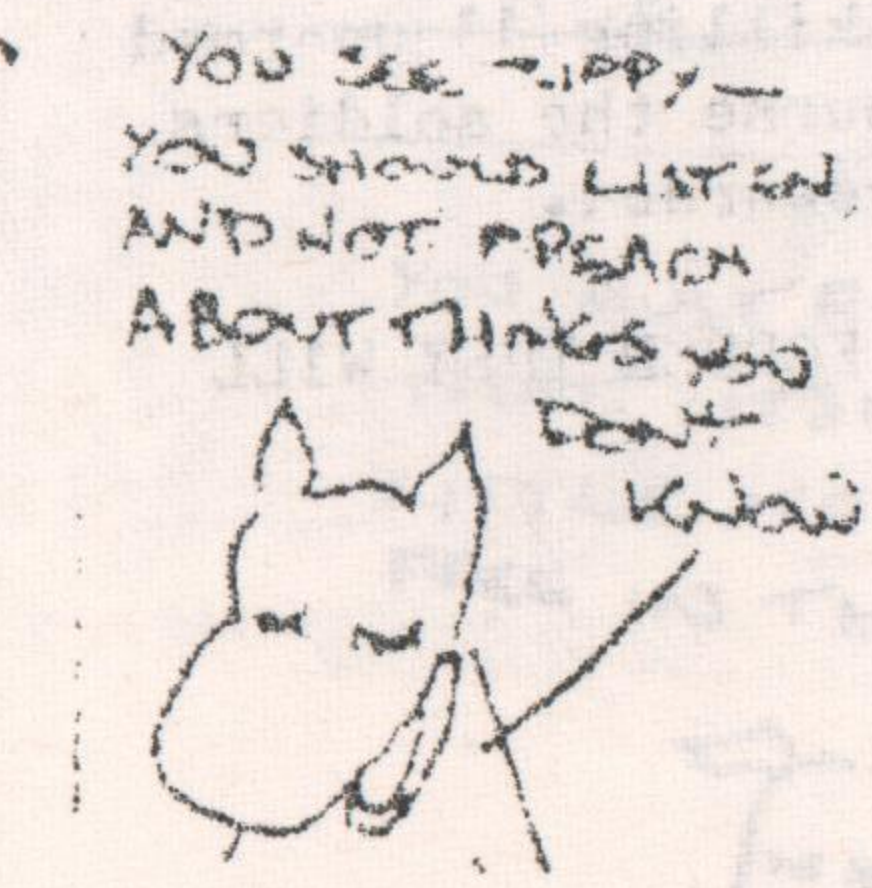 YOU SEE ZIPPY —
YOU SHOULD LISTEN
AND NOT PREACH
ABOUT THINGS YOU
DON'T
KNOW